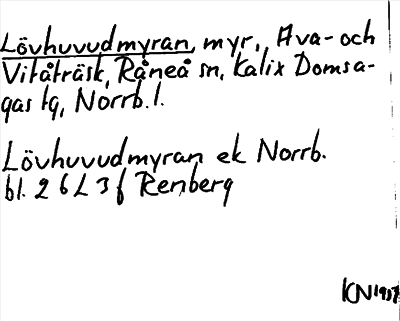 Lövhuvudmyran, myr, Ava- och
Vitåträsk, Råneå sn, Kalix Domsa-
gas tg, Norrb. l.
Lövhuvudmyran ek Norrb.
bl. 26 L 3 f Renberg
KN 1957